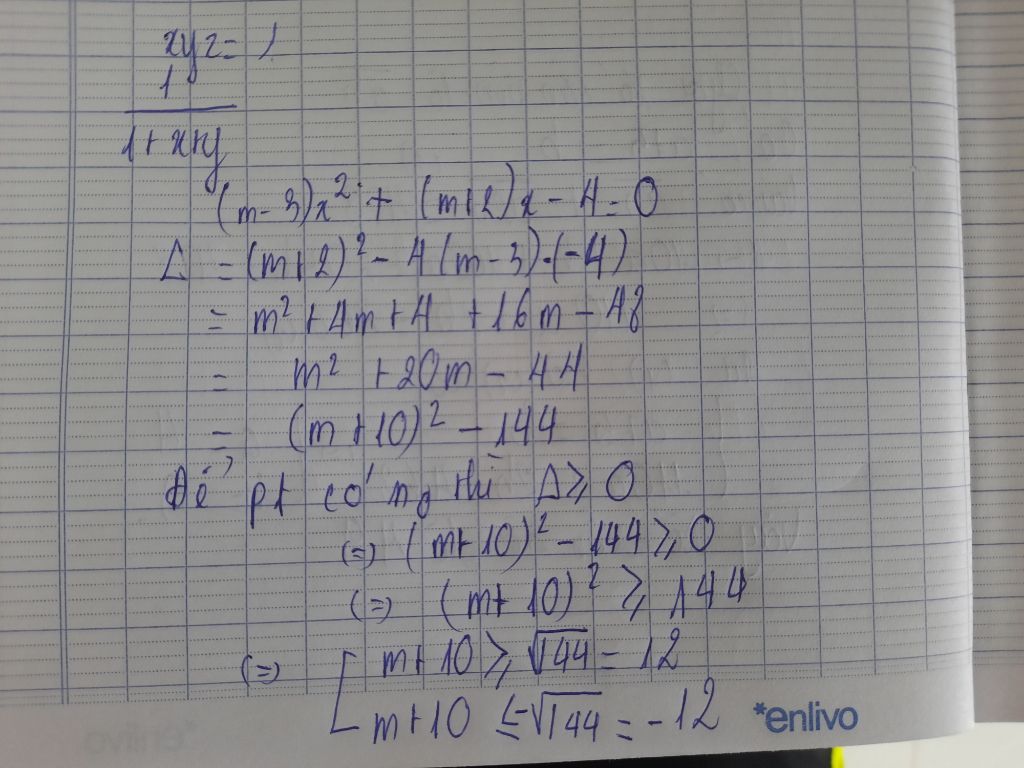 xyz = 1
1
1+x+y
(m-3)x² + (m+2)x - 4 = 0
Δ = (m+2)² - 4(m-3).(-4)
= m² + 4m + 4 + 16m - 48
= m² + 20m - 44
= (m+10)² - 144
Để pt có ng thì Δ ≥ 0
(=) (m+10)² - 144 ≥ 0
(=) (m+10)² ≥ 144
(=) [ m+10 ≥ √144 = 12
m+10 ≤ -√144 = -12
*enlivo